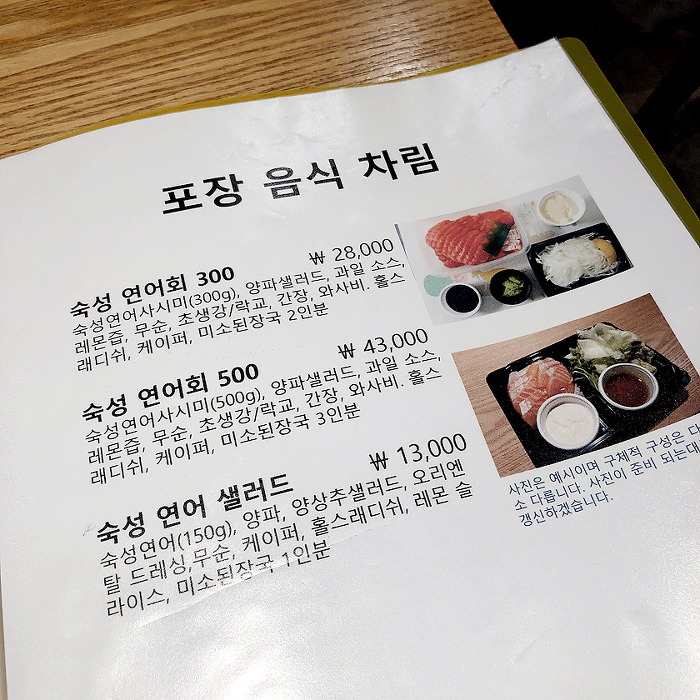 포장 음식 차림
숙성 연어회 300
₩ 28,000
숙성연어사시미(300g), 양파샐러드, 과일 소스,
레몬즙, 무순, 초생강/락교, 간장, 와사비. 홀스
래디쉬, 케이퍼, 미소된장국 2인분
숙성 연어회 500
₩ 43,000
숙성연어사시미(500g), 양파샐러드, 과일 소스,
레몬즙, 무순, 초생강/락교, 간장, 와사비. 홀스
래디쉬, 케이퍼, 미소된장국 3인분
숙성 연어 샐러드
₩ 13,000
숙성연어(150g), 양파, 양상추샐러드, 오리엔
탈 드레싱,무순, 케이퍼, 홀스래디쉬, 레몬 슬
라이스, 미소된장국 1인분
사진은 예시이며 구체적 구성은 다
소 다릅니다. 사진이 준비 되는대
갱신하겠습니다.